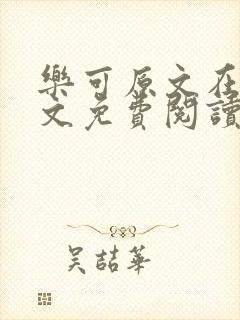 樂可原文在
文免費閱讀
吳喆華